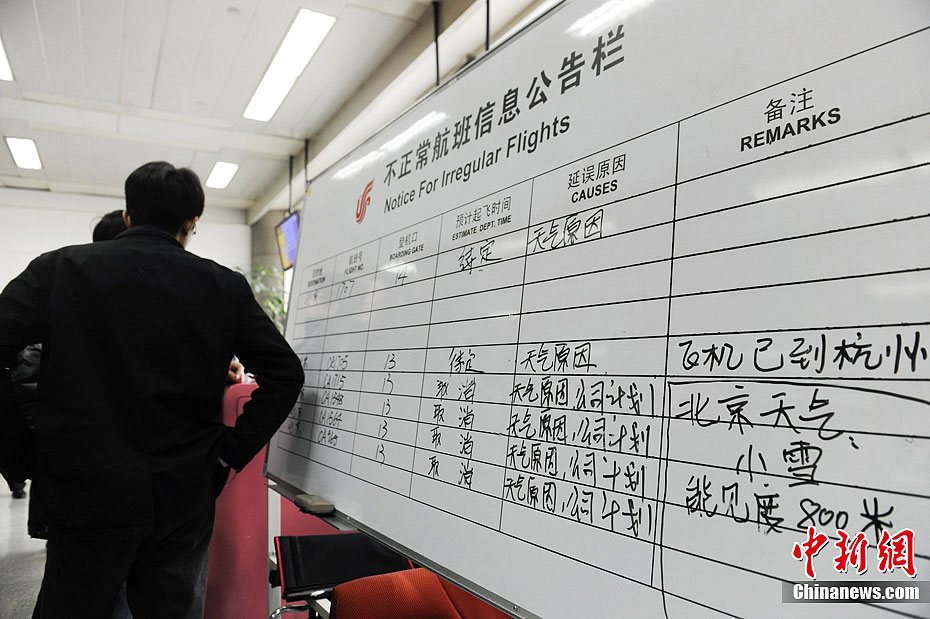 不正常航班信息公告栏
Notice For Irregular Flights
目的地 航班号 登机口 预计起飞时间 延误原因 备注
DESTINATION FLIGHT NO. BOARDING GATE ESTIMATE DEPT. TIME CAUSES REMARKS
14 待定 天气原因
13 待定 天气原因 飞机已到杭州
13 取消 天气原因,公司计划 北京天气:
13 取消 天气原因,公司计划 小雪
13 取消 天气原因,公司计划 能见度800米
13 取消 天气原因,公司计划
中新网
Chinanews.com